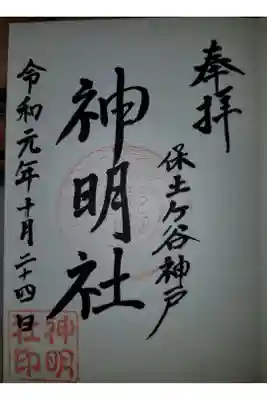 奉拝
保土ケ谷神戸
神明社
令和元年十月二十四日
神明
社印